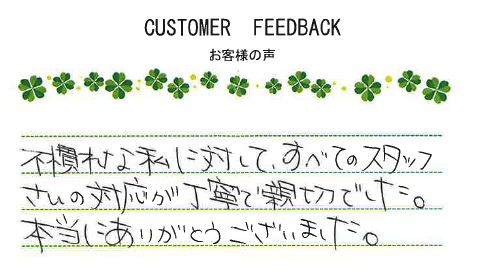 CUSTOMER FEEDBACK
お客様の声
不慣れな私に対して、すべてのスタッフ
さんの対応が丁寧で親切でした。
本当にありがとうございました。